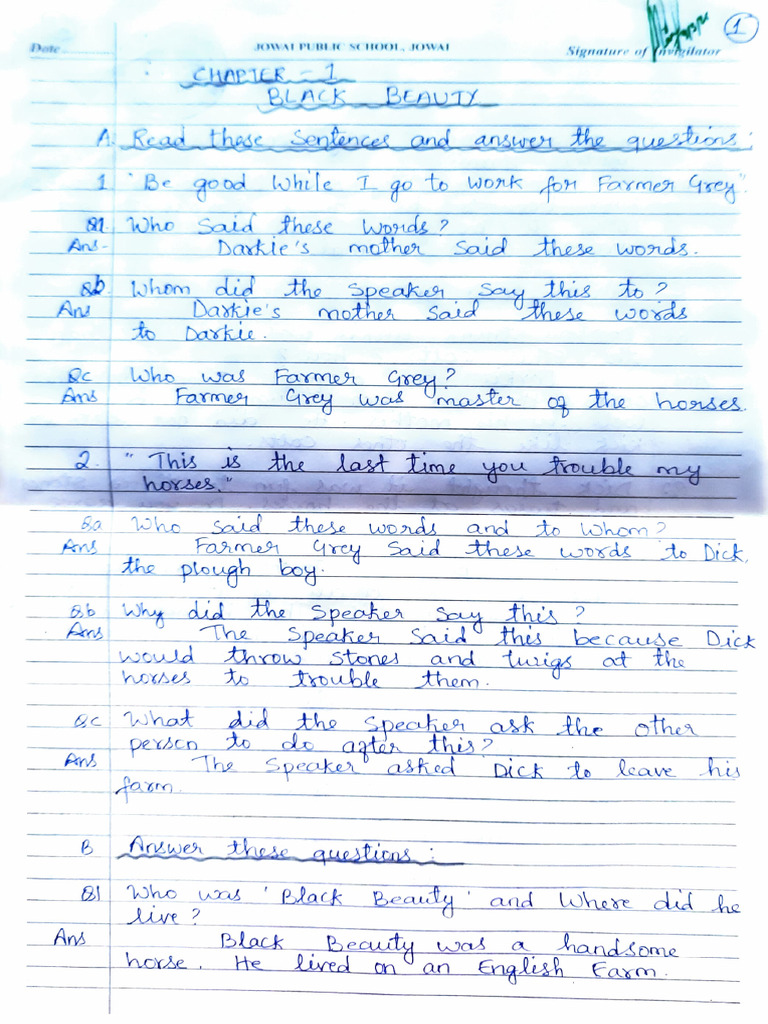 1
Date
JOWAI PUBLIC SCHOOL, JOWAI
Signature of Invigilator
CHAPTER - 1
BLACK BEAUTY
A. Read these sentences and answer the questions:
1 "Be good while I go to work for Farmer Grey".
Qa. Who said these words?
Ans- Darkie's mother said these words.
Qb. Whom did the speaker say this to?
Ans Darkie's mother said these words
to Darkie.
Qc Who was Farmer Grey?
Ans Farmer Grey was master of the horses.
2. "This is the last time you trouble my
horses."
Qa Who said these words and to whom?
Ans Farmer Grey said these words to Dick,
the plough boy.
Qb Why did the speaker say this?
Ans The speaker said this because Dick
would throw stones and twigs at the
horses to trouble them.
Qc What did the speaker ask the other
person to do after this?
Ans The speaker asked Dick to leave his
farm.
B Answer these questions:
Q1 Who was 'Black Beauty' and where did he
live?
Ans Black Beauty was a handsome
horse. He lived on an English Farm.